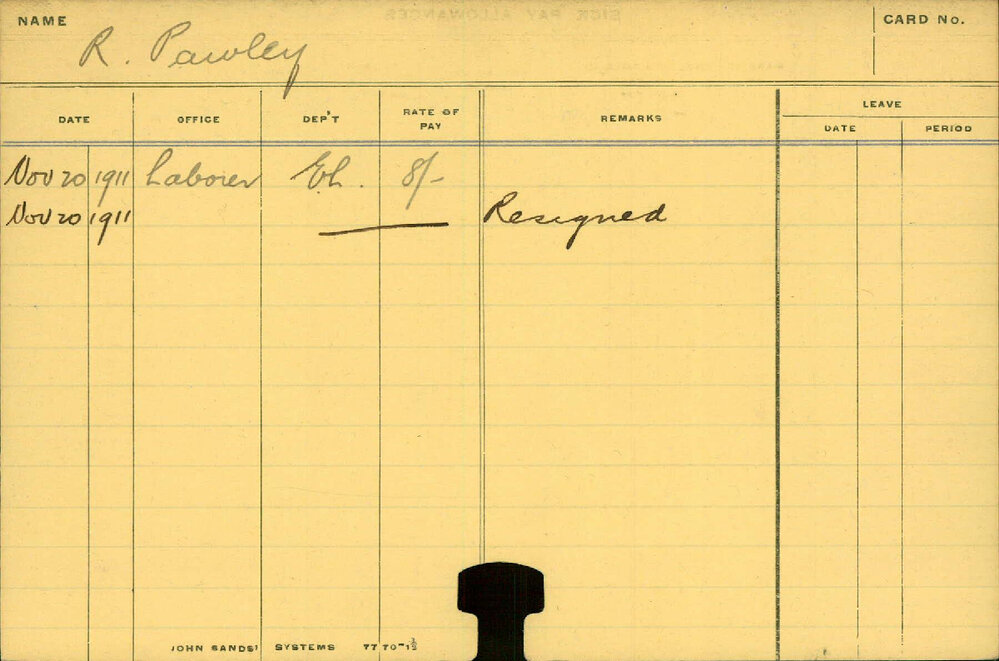 NAME R. Pawley CARD No.
DATE OFFICE DEP'T RATE OF PAY REMARKS LEAVE
DATE PERIOD
Nov 20 1911 Laborer Eh. 8/-
Nov 20 1911 Resigned
JOHN SANDS' SYSTEMS 7770-1½